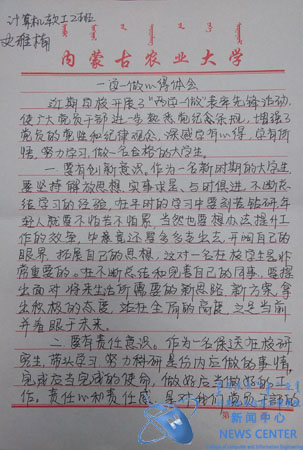 计算机软工2班
史雅楠
内蒙古农业大学
一学一做心得体会
近期自校开展了“两学一做”表率先锋活动，
使广大党员干部进一步熟悉党纪条规，增强了
党员的党性和纪律观念，深感学有心得，学有所
悟，努力学习，做一名合格的大学生。
一 要有创新意识。作为一名新时期的大学生
要坚持解放思想，实事求是，与时俱进，不断总
结学习的经验，在平时的学习中要刻苦钻研，年
轻人就要不怕苦不怕累，当然也要想办法提升工
作的效率，
眼界，拓展自己的思想，这对一名在校学生是非
常重要的。在不断总结和完善自己的同事，要提
出面对将来生出所需要的新思路，新方案，拿
出积极的态度，站在全局的高度，立足当前
并着眼于未来。
二 要有责任意识。作为一名保送在校研
究生，带头学习，努力科研是份内应做的事情，
完成应当完成的使命，做好应当做好的工
作。责任心和责任感，是对我们党员干部的
新闻中心
NEWS CENTER
College of Computer and Information Engineering